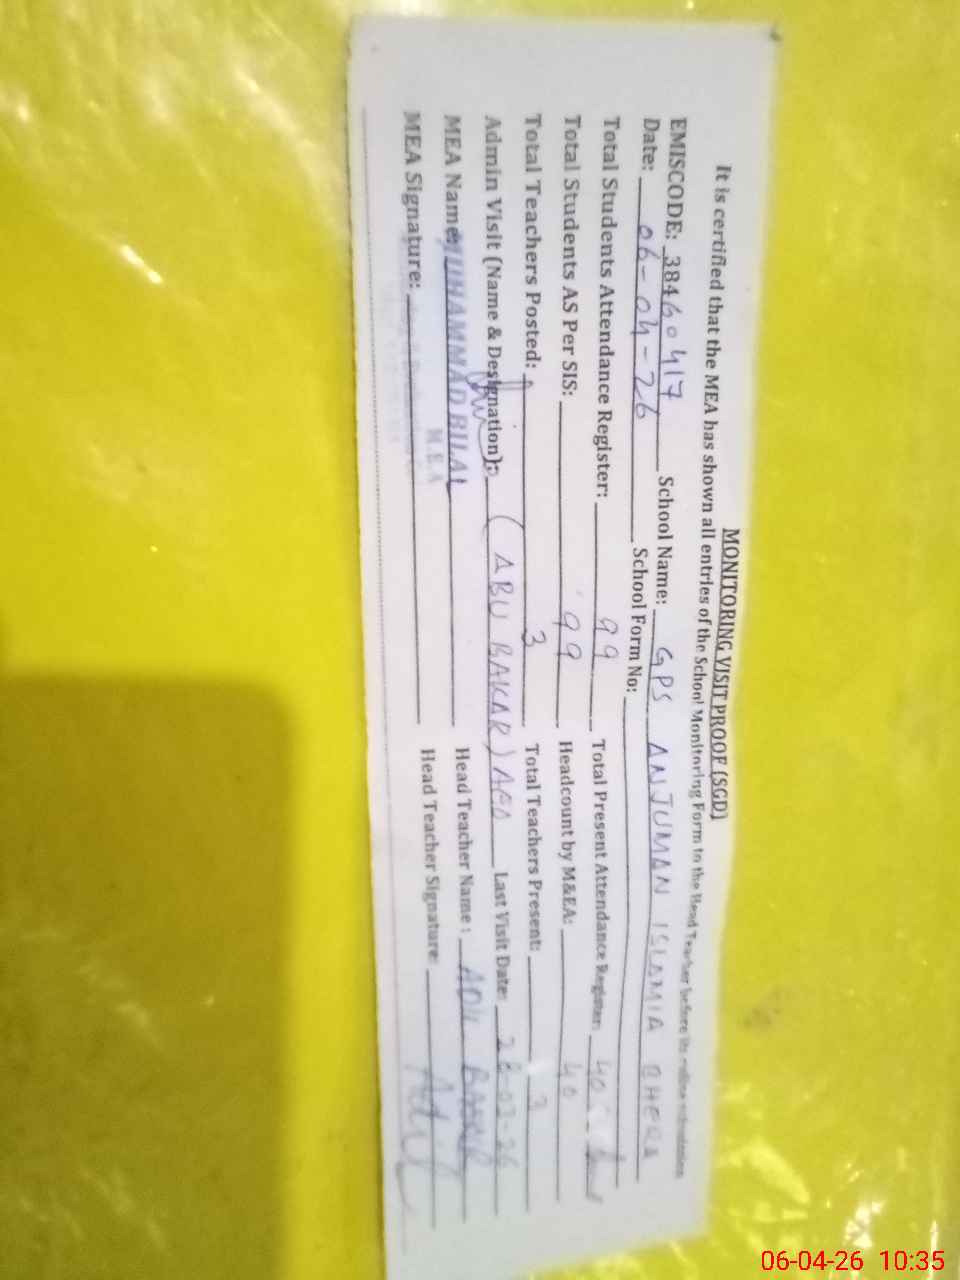 MONITORING VISIT PROOF (SGD)
It is certified that the MEA has shown all entries of the School Monitoring Form to the Head Teacher before its online submission
EMISCODE: 38460417 School Name: GPS ANJUMAN ISLAMIA BHERA
Date: 06-04-26 School Form No:
Total Students Attendance Register: 99 Total Present Attendance Register: 40
Total Students AS Per SIS: 99 Headcount by M&EA: 40
Total Teachers Posted: 3 Total Teachers Present: 3
Admin Visit (Name & Designation): (ABU BAKAR) AEO Last Visit Date: 28-03-26
MEA Name: MUHAMMAD BILAL Head Teacher Name: ADIL
M.E.A
MEA Signature: Head Teacher Signature: Adil
06-04-26 10:35